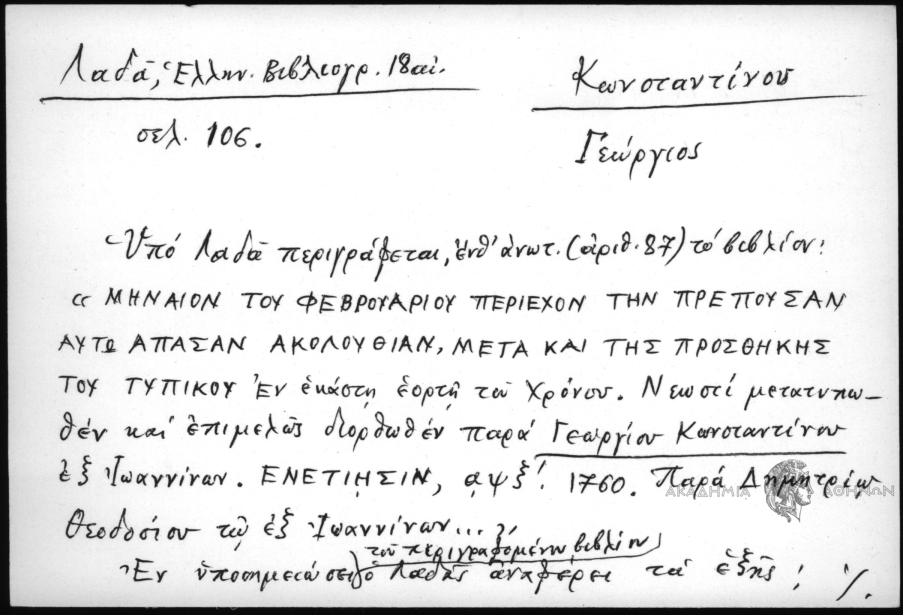 Λαδᾶ, Ἑλλην. Βιβλιογρ. 18 αἰ.
Κωνσταντίνου
σελ. 106.
Γεώργιος
Ὑπό Λαδᾶ περιγράφεται, ἔνθ' ἀνωτ. (ἀριθ. 87) τό βιβλίον:
« ΜΗΝΑΙΟΝ ΤΟΥ ΦΕΒΡΟΥΑΡΙΟΥ ΠΕΡΙΕΧΟΝ ΤΗΝ ΠΡΕΠΟΥΣΑΝ
ΑΥΤΩ ΑΠΑΣΑΝ ΑΚΟΛΟΥΘΙΑΝ, ΜΕΤΑ ΚΑΙ ΤΗΣ ΠΡΟΣΘΗΚΗΣ
ΤΟΥ ΤΥΠΙΚΟΥ Ἐν ἑκάστῃ ἑορτῇ τοῦ Χρόνου. Νεωστί μετατυπω-
θέν καί ἐπιμελῶς διορθωθέν παρά Γεωργίου Κωνσταντίνου
ἐξ Ἰωαννίνων. ΕΝΕΤΙΗΣΙΝ, αψξ΄. 1760. Παρά Δημητρίῳ
ΑΚΑΔΗΜΙΑ ΑΘΗΝΩΝ
Θεοδοσίου τῷ ἐξ Ἰωαννίνων...»
τοῦ περιγραφομένου βιβλίου
Ἐν ὑποσημειώσει ὁ Λαδᾶς ἀναφέρει τά ἑξῆς: ·/.